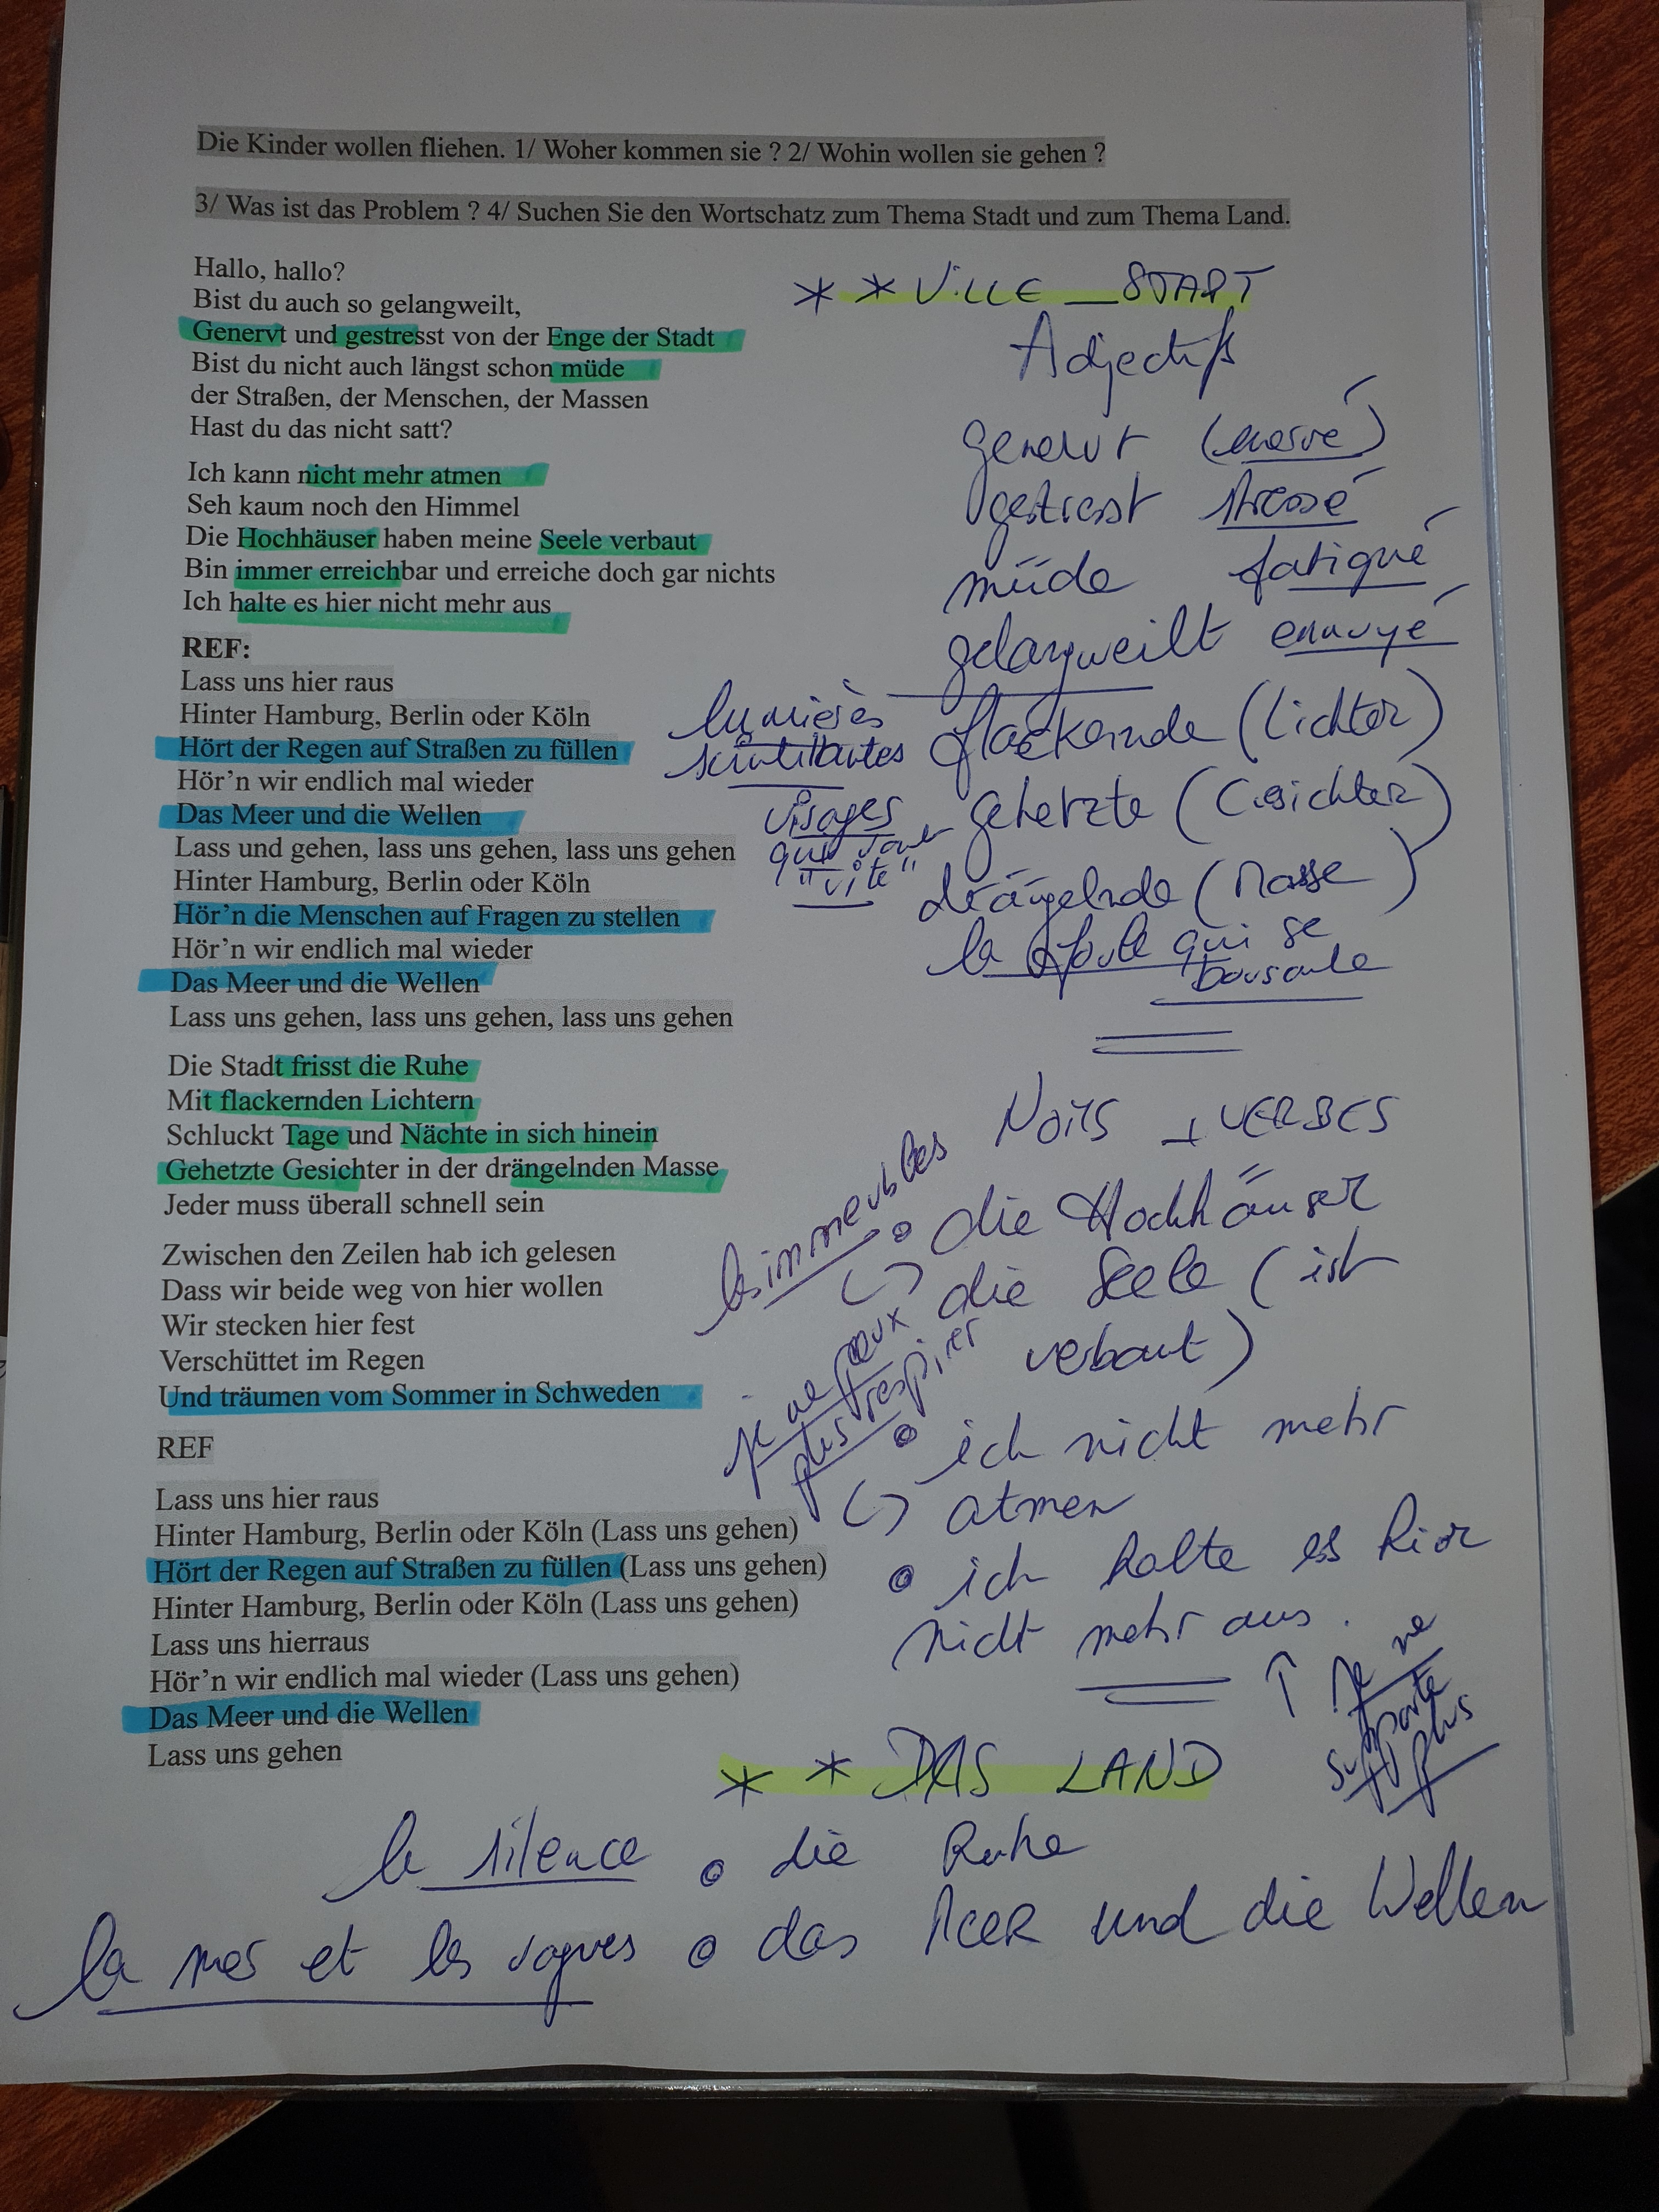 Die Kinder wollen fliehen. 1/ Woher kommen sie ? 2/ Wohin wollen sie gehen ?
3/ Was ist das Problem ? 4/ Suchen Sie den Wortschatz zum Thema Stadt und zum Thema Land.
Hallo, hallo?
Bist du auch so gelangweilt,
Genervt und gestresst von der Enge der Stadt
Bist du nicht auch längst schon müde
der Straßen, der Menschen, der Massen
Hast du das nicht satt?
Ich kann nicht mehr atmen
Seh kaum noch den Himmel
Die Hochhäuser haben meine Seele verbaut
Bin immer erreichbar und erreiche doch gar nichts
Ich halte es hier nicht mehr aus
REF:
Lass uns hier raus
Hinter Hamburg, Berlin oder Köln
Hört der Regen auf Straßen zu füllen
Hör'n wir endlich mal wieder
Das Meer und die Wellen
Lass und gehen, lass uns gehen, lass uns gehen
Hinter Hamburg, Berlin oder Köln
Hör'n die Menschen auf Fragen zu stellen
Hör'n wir endlich mal wieder
Das Meer und die Wellen
Lass uns gehen, lass uns gehen, lass uns gehen
Die Stadt frisst die Ruhe
Mit flackernden Lichtern
Schluckt Tage und Nächte in sich hinein
Gehetzte Gesichter in der drängelnden Masse
Jeder muss überall schnell sein
Zwischen den Zeilen hab ich gelesen
Dass wir beide weg von hier wollen
Wir stecken hier fest
Verschüttet im Regen
Und träumen vom Sommer in Schweden
REF
Lass uns hier raus
Hinter Hamburg, Berlin oder Köln (Lass uns gehen)
Hört der Regen auf Straßen zu füllen (Lass uns gehen)
Hinter Hamburg, Berlin oder Köln (Lass uns gehen)
Lass uns hierraus
Hör'n wir endlich mal wieder (Lass uns gehen)
Das Meer und die Wellen
Lass uns gehen
* * VILLE _ START
Adjectifs
genervt (énervé)
gestresst stressé
müde fatigué
gelangweilt ennuyé
lumières
scintillantes
flackernde (Lichter)
visages
qui
"vite"
gehetzte (Gesichter)
drängelnde (Masse)
la foule qui se
bouscule
NOMS + VERBES
les immeubles
• die Hochhäuser
die Seele (ist
verbaut)
je ne peux
plus respirer
• ich nicht mehr
atmen
• ich halte es hier
nicht mehr aus.
↑ je ne
supporte
plus
* * DAS LAND
le silence • die Ruhe
la mer et les vagues • das MEER und die Wellen